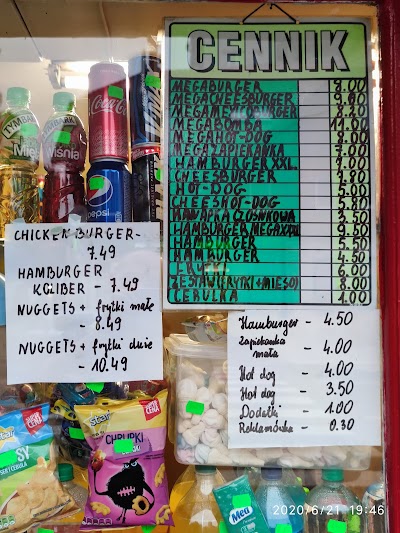 CENNIK
MEGABURGER 8.00
MEGACHEESBURGER
MEGAMEXICOBURGER
MEGABOMBA
MEGAHOT-DOG 7.00
MEGAZAPIEKANKA 7.00
HAMBURGER XXL. 7.00
CHEESBURGER
HOT-DOG 5.00
CHEESHOT-DOG 5.80
KANAPKA CZOSNKOWA 3.50
HAMBURGER MEGAXXL 9.50
HAMBURGER 5.50
HAMBURGER 4.50
6.00
ZESTAW(FRYTKI+MIĘSO) 8.00
CEBULKA 1.00
CHICKEN BURGER-
7.49
HAMBURGER
KOLIBER - 7.49
NUGGETS + frytki małe
- 8.49
NUGGETS + frytki duże
- 10.49
Hamburger - 4.50
Zapiekanka
mała - 4.00
Hot dog - 4.00
Hot dog - 3.50
Dodatki - 1.00
Reklamówka - 0.30
Coca-Cola
pepsi
Wiśnia
star
Chrupki
2020/6/21 19:46